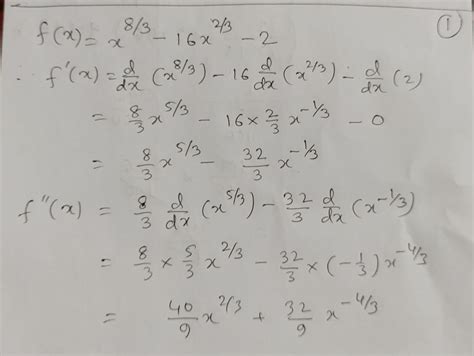 ①
f(x) = x^{8/3} - 16x^{2/3} - 2
∴ f'(x) = d/dx (x^{8/3}) - 16 d/dx (x^{2/3}) - d/dx (2)
= 8/3 x^{5/3} - 16 × 2/3 x^{-1/3} - 0
= 8/3 x^{5/3} - 32/3 x^{-1/3}
f''(x) = 8/3 d/dx (x^{5/3}) - 32/3 d/dx (x^{-1/3})
= 8/3 × 5/3 x^{2/3} - 32/3 × (-1/3) x^{-4/3}
= 40/9 x^{2/3} + 32/9 x^{-4/3}